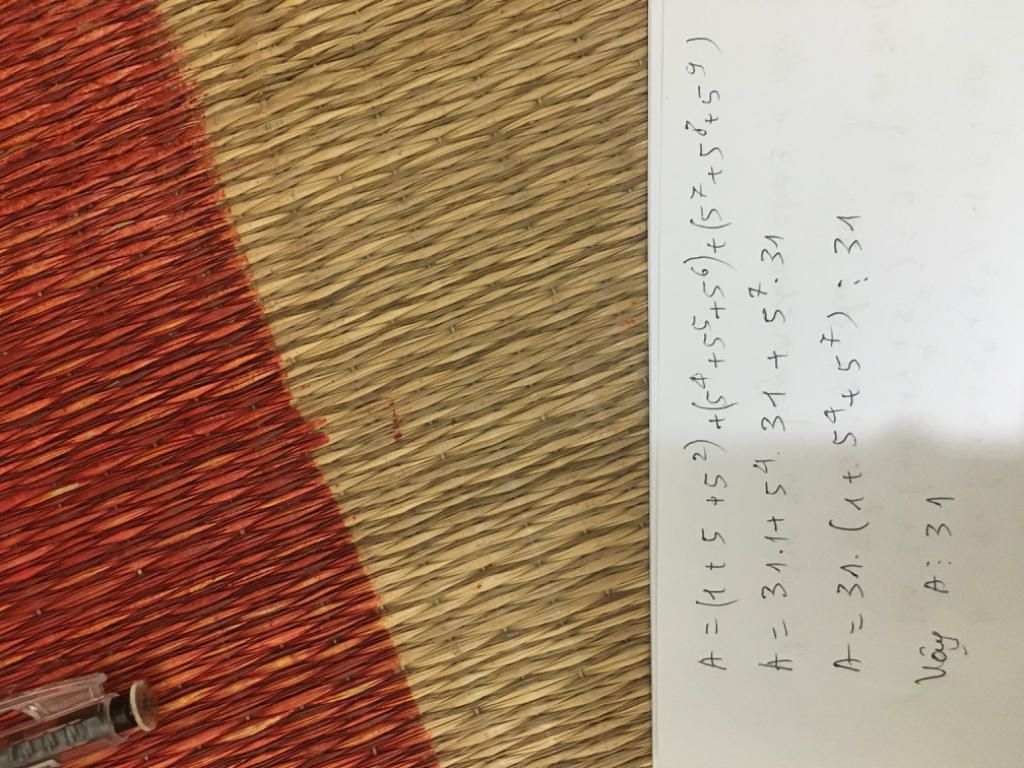 A = (1 + 5 + 5²) + (5⁴ + 5⁵ + 5⁶) + (5⁷ + 5⁸ + 5⁹)
A = 31.1 + 5⁴. 31 + 5⁷.31
A = 31. (1 + 5⁴ + 5⁷) ⋮ 31
Vậy A ⋮ 31